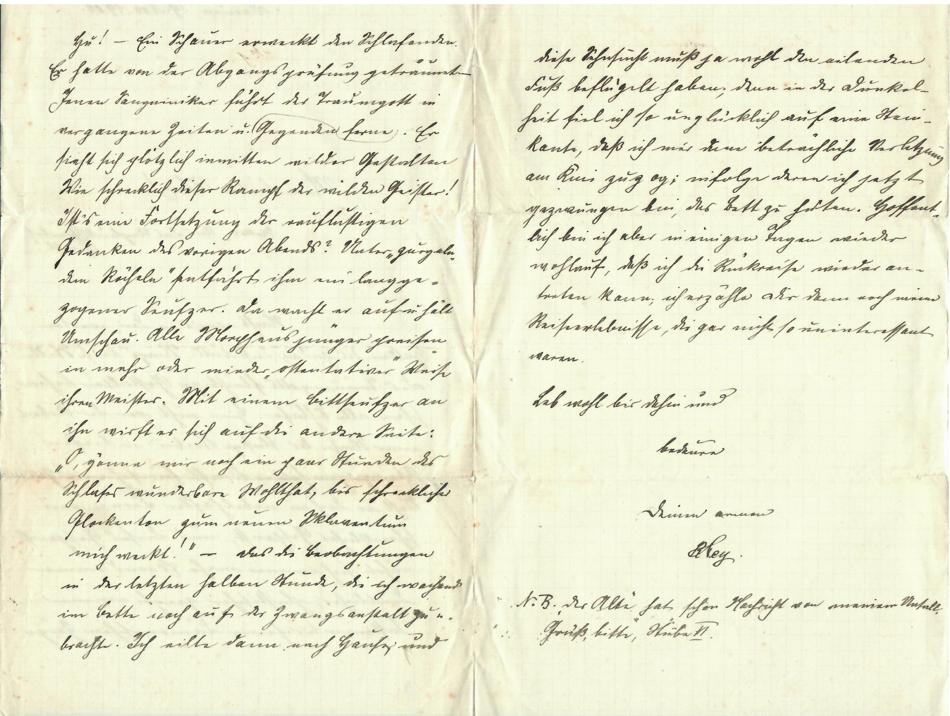 Hu! — Ein Schauer erweckt den Schlafenden.
Er hatte von der Abgangsprüfung geträumt.
Jenen Sanguiniker führt der Traumgott in
vergangene Zeiten u. Gegenden ferne. Er
sieht sich plötzlich inmitten wilder Gestalten
Wie schrecklich dieser Kampf der wilden Geister!
Ist's eine Fortsetzung der rauflustigen
Gedanken des vorigen Abends? Unter „gurgeln-
dem Röcheln" entfährt ihm ein langge-
zogener Seufzer. Da wacht er auf u. hält
Umschau. Alle Morpheusjünger preisen
in mehr oder minder „ostentativer" Weise
ihren Meister. Mit einem Bittseufzer an
ihn wirft er sich auf die andere Seite:
„O, gönne mir noch ein paar Stunden des
Schlafes wunderbare Wohlthat, bis schrecklicher
Glockenton zum neuen Sklaventum
mich weckt!" — Das die Beobachtungen
in der letzten halben Stunde, die ich wachend
im Bette noch auf der Zwangsanstalt zu-
brachte. Ich eilte dann nach Hause; und
diese Sehnsucht muß ja wohl den eilenden
Fuß beflügelt haben; denn in der Dunkel-
heit fiel ich so unglücklich auf eine Stein-
kante, daß ich mir eine beträchliche Verletzung
am Knie zuzog; infolge deren ich jetzt
gezwungen bin, das Bett zu hüten. Hoffent-
lich bin ich aber in einigen Tagen wieder
wohlauf, daß ich die Rückreise wieder an-
treten kann; ich erzähle Dir dann noch meine
Reiseerlebnisse, die gar nicht so uninteressant
waren.
Leb wohl bis dahin und
bedaure
Deinen armen
N. B. Der Alte hat schon Nachricht von meinem Unfall.
Grüß, bitte, Stube VI.